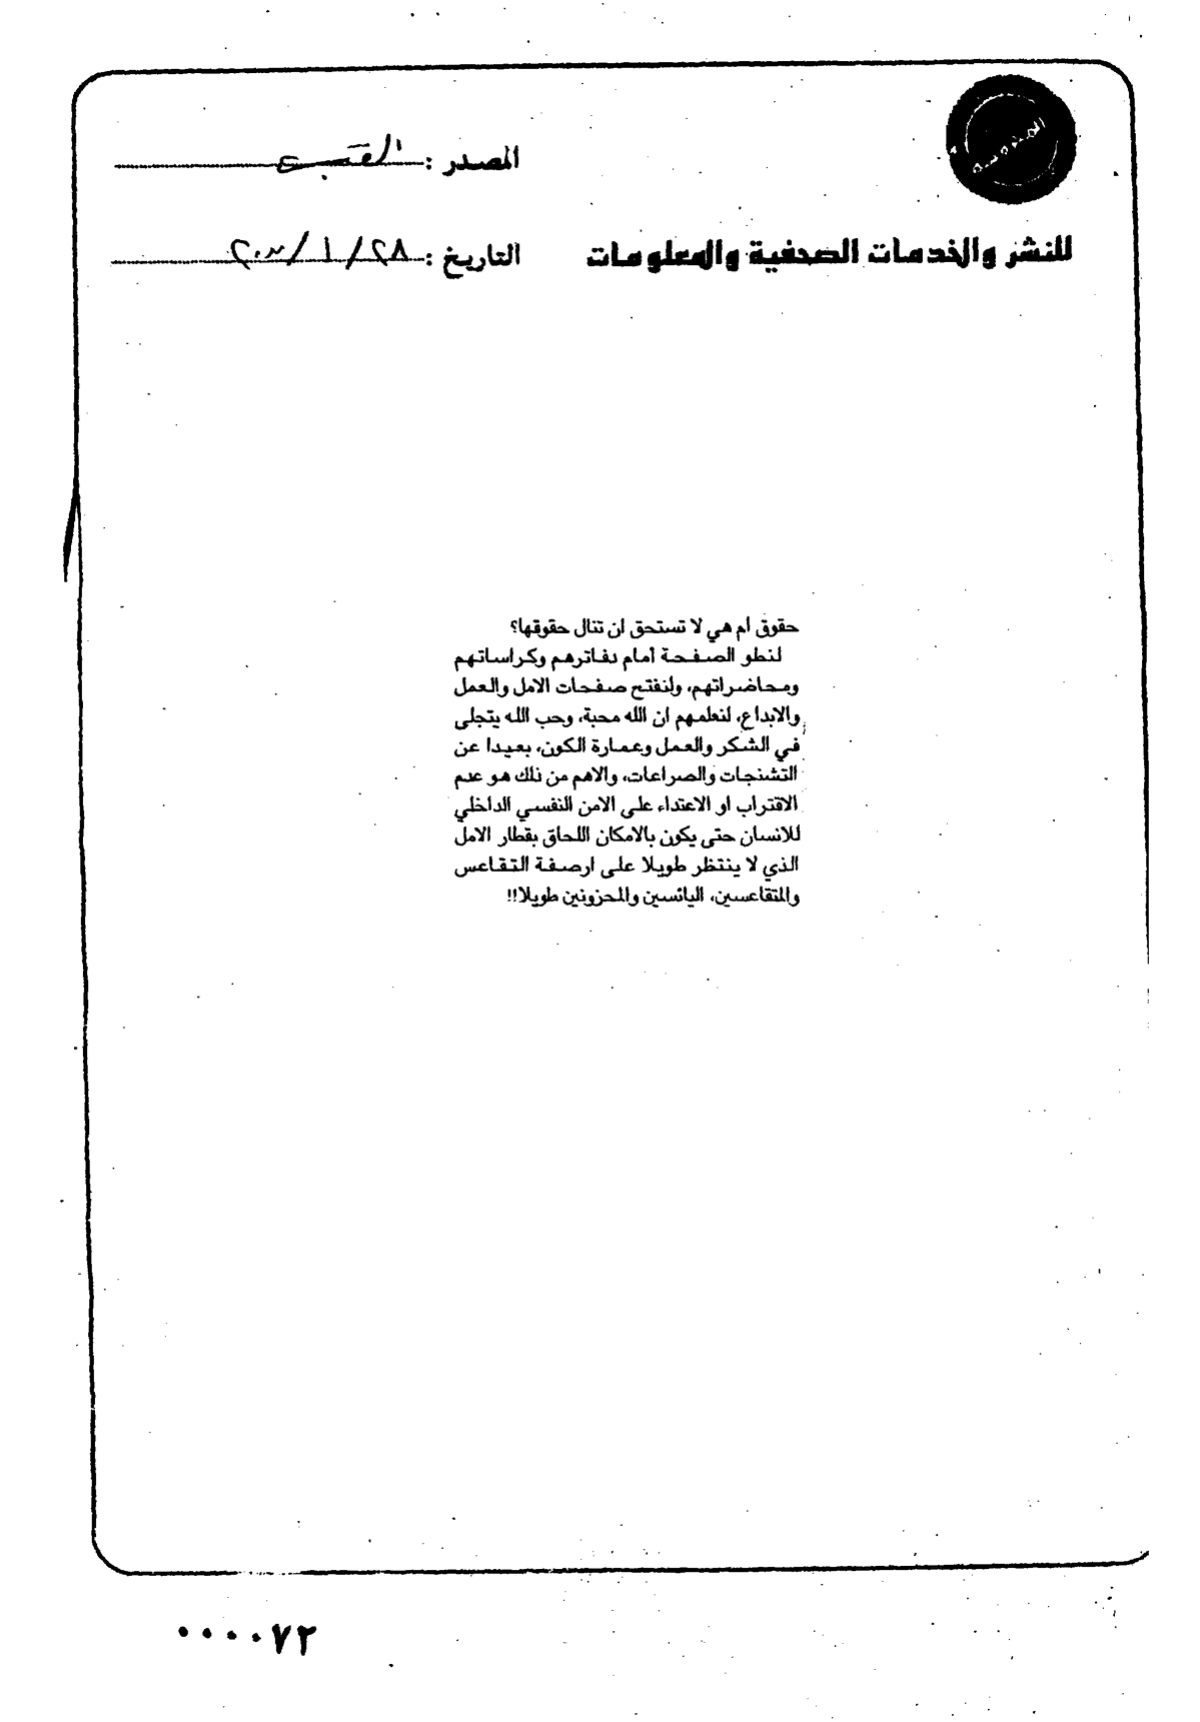 المصدر : القبس
للنشر والخدمات الصحفية والمعلومات
التاريخ : ٢٨/١/
حقوق أم هي لا تستحق ان تنال حقوقها؟
لنطو الصفحة أمام دفاترهم وكراساتهم
ومحاضراتهم، ولنفتح صفحات الامل والعمل
والابداع، لنعلمهم ان الله محبة، وحب الله يتجلى
في الشكر والعمل وعمارة الكون، بعيدا عن
التشنجات والصراعات، والاهم من ذلك هو عدم
الاقتراب او الاعتداء على الامن النفسي الداخلي
للانسان حتى يكون بالامكان اللحاق بقطار الامل
الذي لا ينتظر طويلا على ارصفة التقاعس
والمتقاعسين، اليائسين والمحزونين طويلا!!
٠٠٠٠٧٢